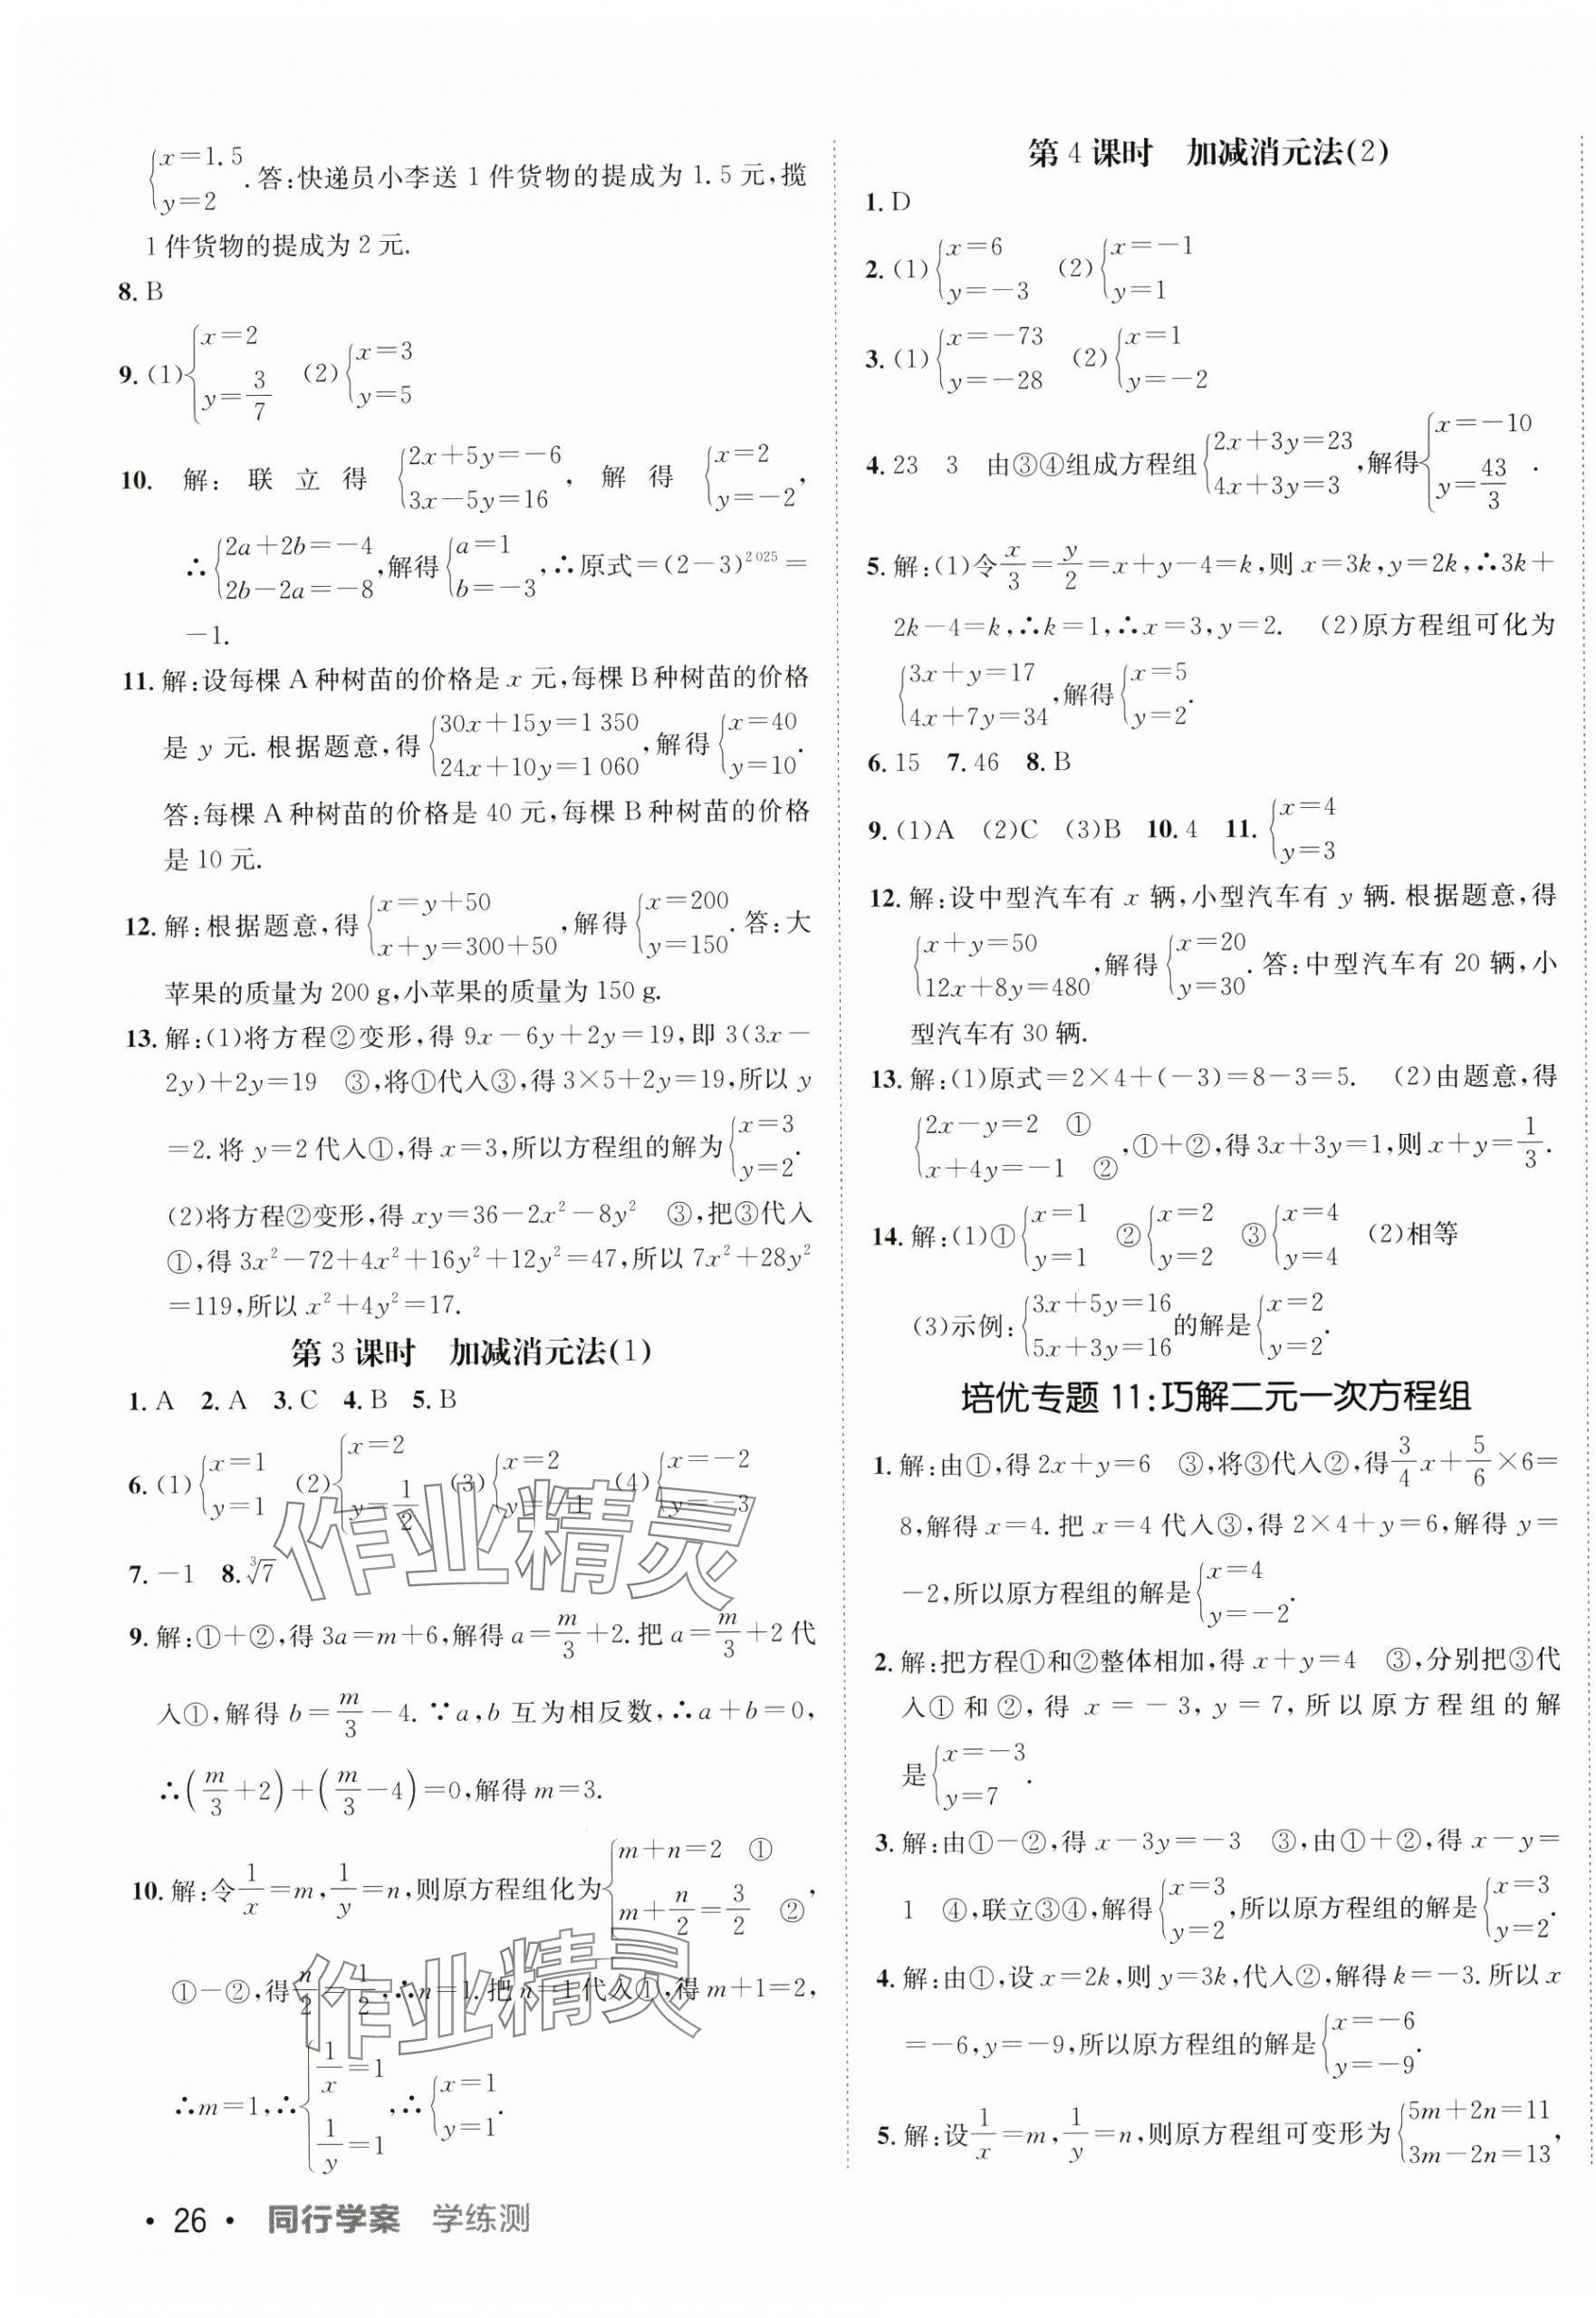 {x=1.5
y=2 .答:快递员小李送 1 件货物的提成为 1.5 元,揽
1 件货物的提成为 2 元.
8. B
9. (1){x=2
y=3/7 (2){x=3
y=5
10. 解: 联 立 得 {2x+5y=-6
3x-5y=16 , 解 得 {x=2
y=-2 ,
∴{2a+2b=-4
2b-2a=-8 ,解得{a=1
b=-3 ,∴原式=(2-3)²⁰²⁵=
-1.
11. 解:设每棵 A 种树苗的价格是 x 元,每棵 B 种树苗的价格
是 y 元. 根据题意,得{30x+15y=1 350
24x+10y=1 060 ,解得{x=40
y=10 .
答:每棵 A 种树苗的价格是 40 元,每棵 B 种树苗的价格
是 10 元.
12. 解:根据题意,得{x=y+50
x+y=300+50 ,解得{x=200
y=150 .答:大
苹果的质量为 200 g,小苹果的质量为 150 g.
13. 解:(1)将方程②变形,得 9x-6y+2y=19,即 3(3x-
2y)+2y=19 ③,将①代入③,得 3×5+2y=19,所以 y
=2.将 y=2 代入①,得 x=3,所以方程组的解为{x=3
y=2 .
(2)将方程②变形,得 xy=36-2x²-8y² ③,把③代入
①,得 3x²-72+4x²+16y²+12y²=47,所以 7x²+28y²
=119,所以 x²+4y²=17.
第 3 课时 加减消元法(1)
1. A 2. A 3. C 4. B 5. B
6. (1){x=1
y=1 (2){x=2
y=1/2 (3){x=2
y=-1 (4){x=-2
y=-3
7. -1 8. ³√7
9. 解:①+②,得 3a=m+6,解得 a=m/3+2.把 a=m/3+2 代
入①,解得 b=m/3-4. ∵a,b 互为相反数,∴a+b=0,
∴(m/3+2)+(m/3-4)=0,解得 m=3.
10. 解:令1/x=m,1/y=n,则原方程组化为{m+n=2 ①
m+n/2=3/2 ② ,
①-②,得n/2=1/2,∴n=1.把 n=1 代入①,得 m+1=2,
∴m=1,∴{1/x=1
1/y=1 ,∴{x=1
y=1 .
· 26 · 同行学案 学练测
第 4 课时 加减消元法(2)
1. D
2. (1){x=6
y=-3 (2){x=-1
y=1
3. (1){x=-73
y=-28 (2){x=1
y=-2
4. 23 3 由③④组成方程组{2x+3y=23
4x+3y=3 ,解得{x=-10
y=43/3 .
5. 解:(1)令x/3=y/2=x+y-4=k,则 x=3k,y=2k,∴3k+
2k-4=k,∴k=1,∴x=3,y=2. (2)原方程组可化为
{3x+y=17
4x+7y=34 ,解得{x=5
y=2 .
6. 15 7. 46 8. B
9. (1)A (2)C (3)B 10. 4 11. {x=4
y=3
12. 解:设中型汽车有 x 辆,小型汽车有 y 辆. 根据题意,得
{x+y=50
12x+8y=480 ,解得{x=20
y=30 .答:中型汽车有 20 辆,小
型汽车有 30 辆.
13. 解:(1)原式=2×4+(-3)=8-3=5. (2)由题意,得
{2x-y=2 ①
x+4y=-1 ② ,①+②,得 3x+3y=1,则 x+y=1/3.
14. 解:(1)①{x=1
y=1 ②{x=2
y=2 ③{x=4
y=4 (2)相等
(3)示例:{3x+5y=16
5x+3y=16 的解是{x=2
y=2 .
培优专题 11:巧解二元一次方程组
1. 解:由①,得 2x+y=6 ③,将③代入②,得3/4x+5/6×6=
8,解得 x=4.把 x=4 代入③,得 2×4+y=6,解得 y=
-2,所以原方程组的解是{x=4
y=-2 .
2. 解:把方程①和②整体相加,得 x+y=4 ③,分别把③代
入①和②,得 x=-3,y=7,所以原方程组的解
是{x=-3
y=7 .
3. 解:由①-②,得 x-3y=-3 ③,由①+②,得 x-y=
1 ④,联立③④,解得{x=3
y=2 ,所以原方程组的解是{x=3
y=2 .
4. 解:由①,设 x=2k,则 y=3k,代入②,解得 k=-3.所以 x
=-6,y=-9,所以原方程组的解是{x=-6
y=-9 .
5. 解:设1/x=m,1/y=n,则原方程组可变形为{5m+2n=11
3m-2n=13 ,
作业精灵
作业精灵